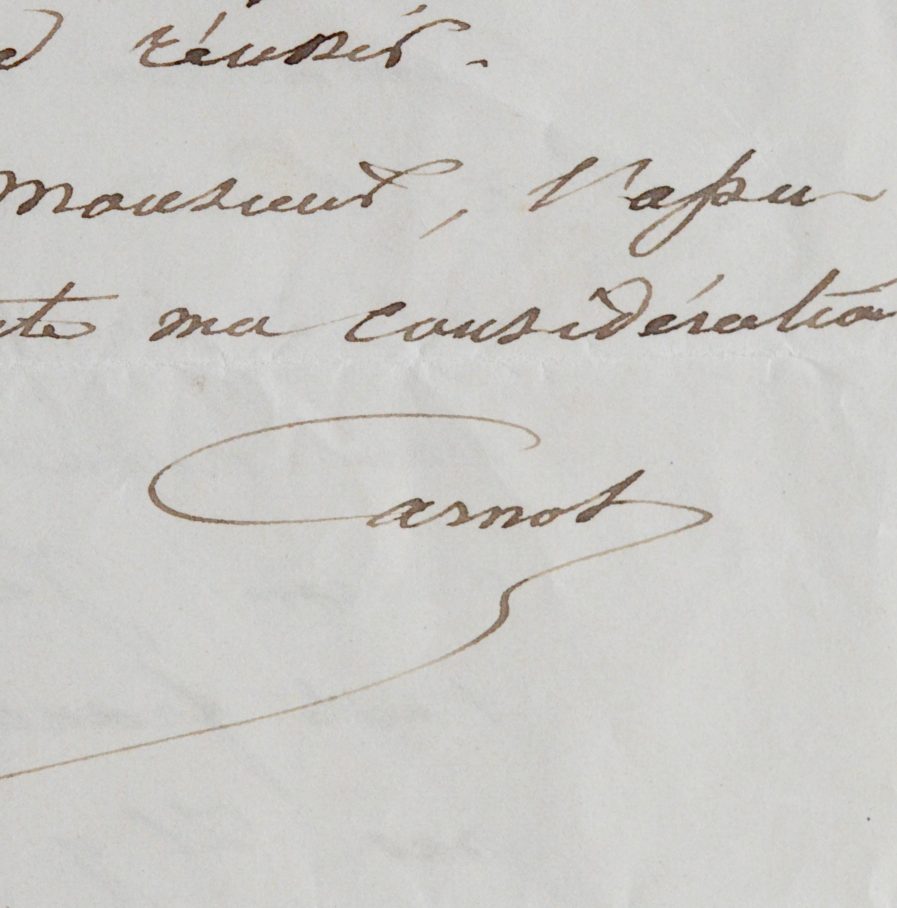 réussir.
Monsieur, l'assu
ma considération
Carnot